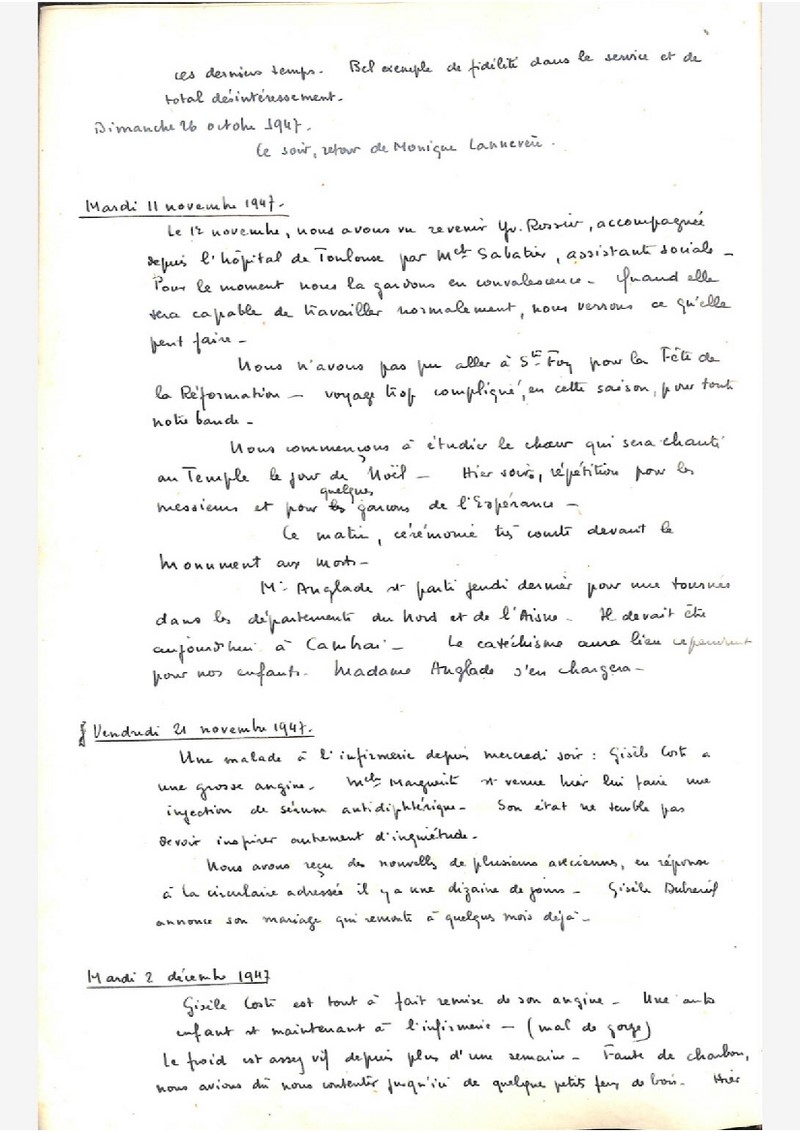 ces derniers temps. Bel exemple de fidélité dans le service et de
total désintéressement.
Dimanche 26 octobre 1947.
Ce soir, retour de Monique
Mardi 11 novembre 1947.
Le 1er novembre, nous avons vu revenir Yv. Rossier, accompagnée
depuis l'hôpital de Toulouse par Melle Sabatier, assistante sociale -
Pour le moment nous la gardons en convalescence - Quand elle
sera capable de travailler normalement, nous verrons ce qu'elle
peut faire -
Nous n'avons pas pu aller à Ste Foy pour la Fête de
la Réformation - voyage trop compliqué, en cette saison, pour toute
notre bande -
Nous commençons à étudier le chœur qui sera chanté
au Temple le jour de Noël - Hier soir, répétition pour les
messieurs et pour quelques garçons de l'Espérance -
Ce matin, cérémonie très courte devant le
Monument aux Morts -
Mr Anglade est parti jeudi dernier pour une tournée
dans les départements du Nord et de l'Aisne. Il devait être
aujourd'hui à Cambrai - Le catéchisme aura lieu cependant
pour nos enfants. Madame Anglade s'en chargera -
Vendredi 21 novembre 1947.
Une malade à l'infirmerie depuis mercredi soir : Gisèle Coste a
une grosse angine. Melle Marguerite est venue hier lui faire une
injection de sérum antidiphtérique - Son état ne semble pas
devoir inspirer autrement d'inquiétude.
Nous avons reçu des nouvelles de plusieurs anciennes, en réponse
à la circulaire adressée il y a une dizaine de jours - Gisèle Dubreuil
annonce son mariage qui remonte à quelques mois déjà -
Mardi 2 décembre 1947
Gisèle Coste est tout à fait remise de son angine - Une autre
enfant est maintenant à l'infirmerie - (mal de gorge)
Le froid est assez vif depuis plus d'une semaine - Faute de charbon,
nous avions dû nous contenter jusqu'ici de quelques petits feux de bois. Hier